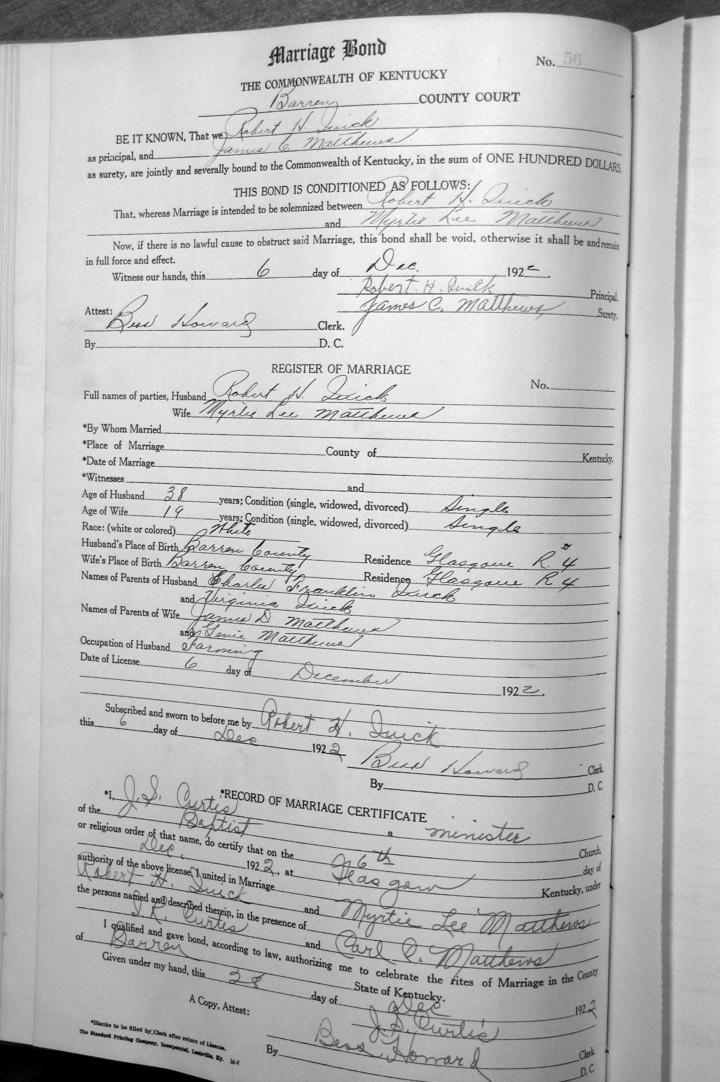 Marriage Bond
No. 56
THE COMMONWEALTH OF KENTUCKY
Barren COUNTY COURT
BE IT KNOWN, That we Robert H. Quick
as principal, and James C. Matthews
as surety, are jointly and severally bound to the Commonwealth of Kentucky, in the sum of ONE HUNDRED DOLLARS.
THIS BOND IS CONDITIONED AS FOLLOWS:
That, whereas Marriage is intended to be solemnized between Robert H. Quick
and Myrtie Lee Matthews
Now, if there is no lawful cause to obstruct said Marriage, this bond shall be void, otherwise it shall be and remain
in full force and effect.
Witness our hands, this 6 day of Dec. 1922.
Robert. H. Quick Principal.
James C. Matthews, Surety.
Attest: Bess Howard Clerk.
By D. C.
REGISTER OF MARRIAGE
No.
Full names of parties, Husband Robert H. Quick
Wife Myrtie Lee Matthews
*By Whom Married
*Place of Marriage County of Kentucky.
*Date of Marriage
*Witnesses and
Age of Husband 38 years; Condition (single, widowed, divorced) Single
Age of Wife 19 years; Condition (single, widowed, divorced) Single
Race: (white or colored) White
Husband's Place of Birth Barren County Residence Glasgow R #4
Wife's Place of Birth Barren County Residence Glasgow R 4
Names of Parents of Husband Charles Franklin Quick
and Virginia Quick
Names of Parents of Wife James D Matthews
and Genie Matthews
Occupation of Husband Farming
Date of License 6 day of December 1922.
Subscribed and sworn to before me by Robert H. Quick
this 6 day of Dec 1922
Bess Howard Clerk
By D. C.
*RECORD OF MARRIAGE CERTIFICATE
*I, J. S. Curtis a minister
of the Baptist Church,
or religious order of that name, do certify that on the 26th day of
Dec, 1922, at Glasgow Kentucky, under
authority of the above license, I united in Marriage
Robert H. Quick and Myrtie Lee Matthews
the persons named and described therein, in the presence of
J. R. Curtis and Carl C. Matthews
I qualified and gave bond, according to law, authorizing me to celebrate the rites of Marriage in the County
of Barren State of Kentucky.
Given under my hand, this 28 day of Dec 1922
J. S. Curtis
A Copy, Attest: Bess Howard Clerk
By D. C.
*Blanks to be filled by Clerk after return of License.
The Standard Printing Company, Incorporated, Louisville, Ky.